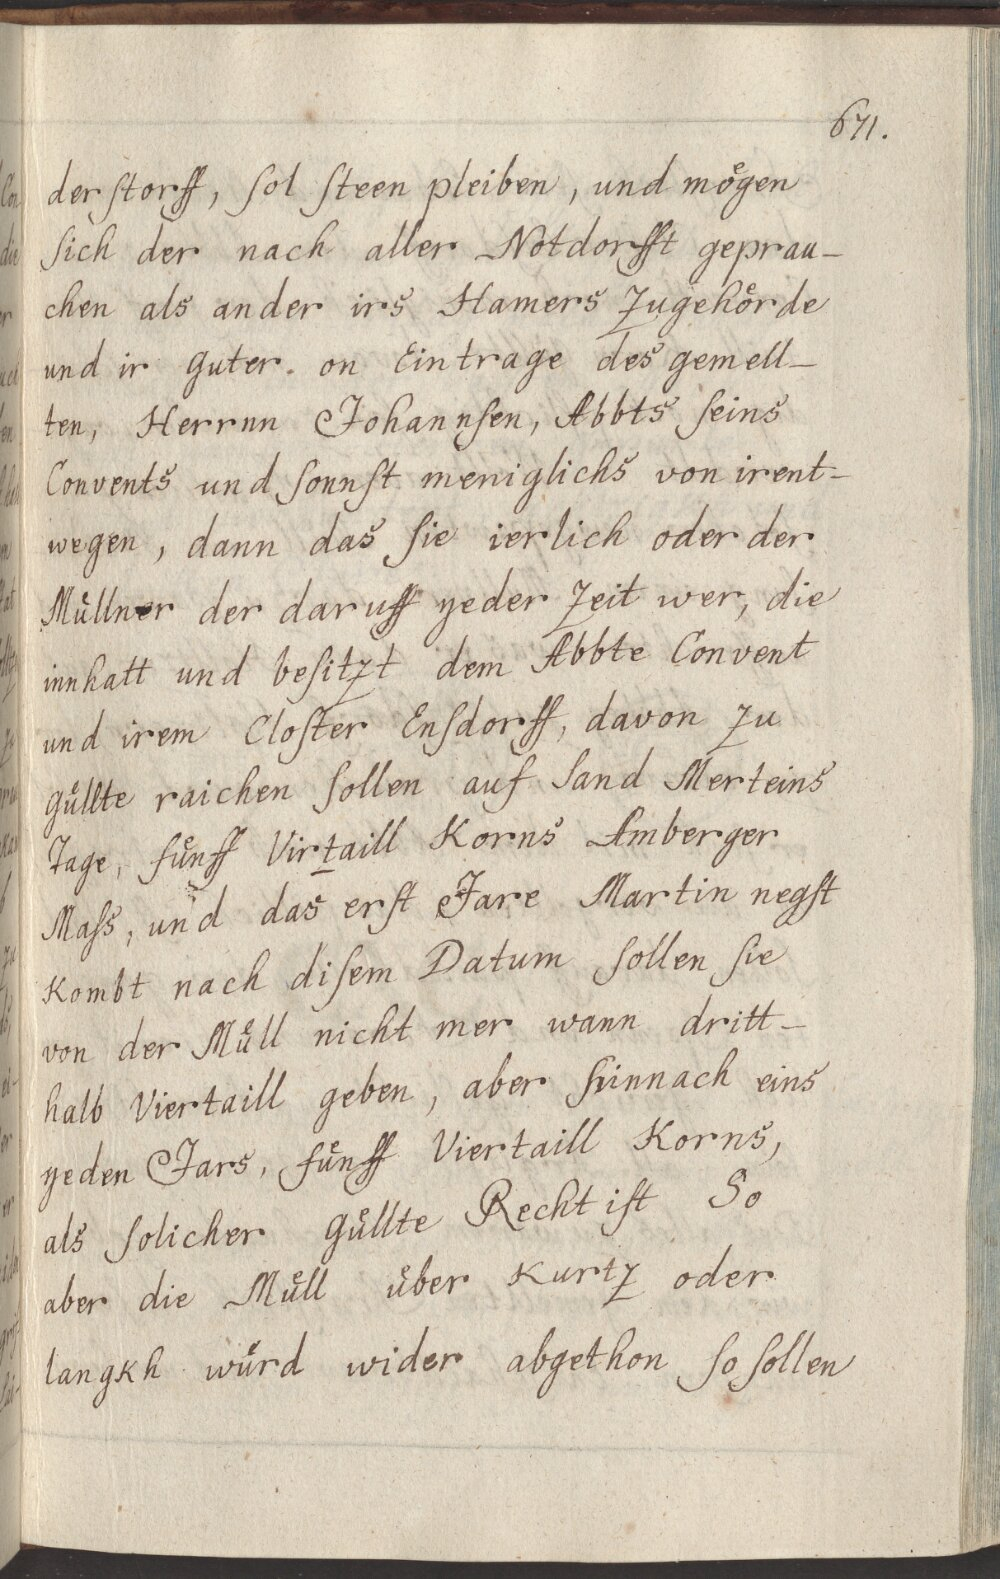 671.
derstorff, sol steen pleiben, und mögen
sich der nach aller Notdorfft geprau-
chen als ander irs Hamers Zugehörde
und ir Guter. on Eintrage des gemell-
ten, Herrnn Johannsen, Abbts seins
Convents und sonnst meniglichs von irent-
wegen, dann das sie ierlich oder der
Müllner der daruff yeder Zeit wer, die
innhatt und besitzt dem Abbte Convent
und irem Closter Ensdorff, davon zu
Güllte raichen sollen auf sand Merteins
Tage, fünff Virtaill Korns Amberger
Mass, und das erst Jare Martin negst
Kombt nach disem Datum sollen sie
von der Müll nicht mer wann dritt-
halb Viertaill geben, aber hinnach eins
yeden Jars, fünff Viertaill Korns,
als solicher Güllte Recht ist So
aber die Müll über Kurtz oder
langkh würd wider abgethon so sollen